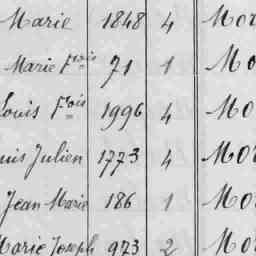 Marie 1848 4 Mor
Marie Fçois 71 1 Mo
Louis Fçois 1996 4 Mo
uis Julien 1773 4 Mor
Jean Marie 186 1 Mor
Marie Joseph 973 2 Mor